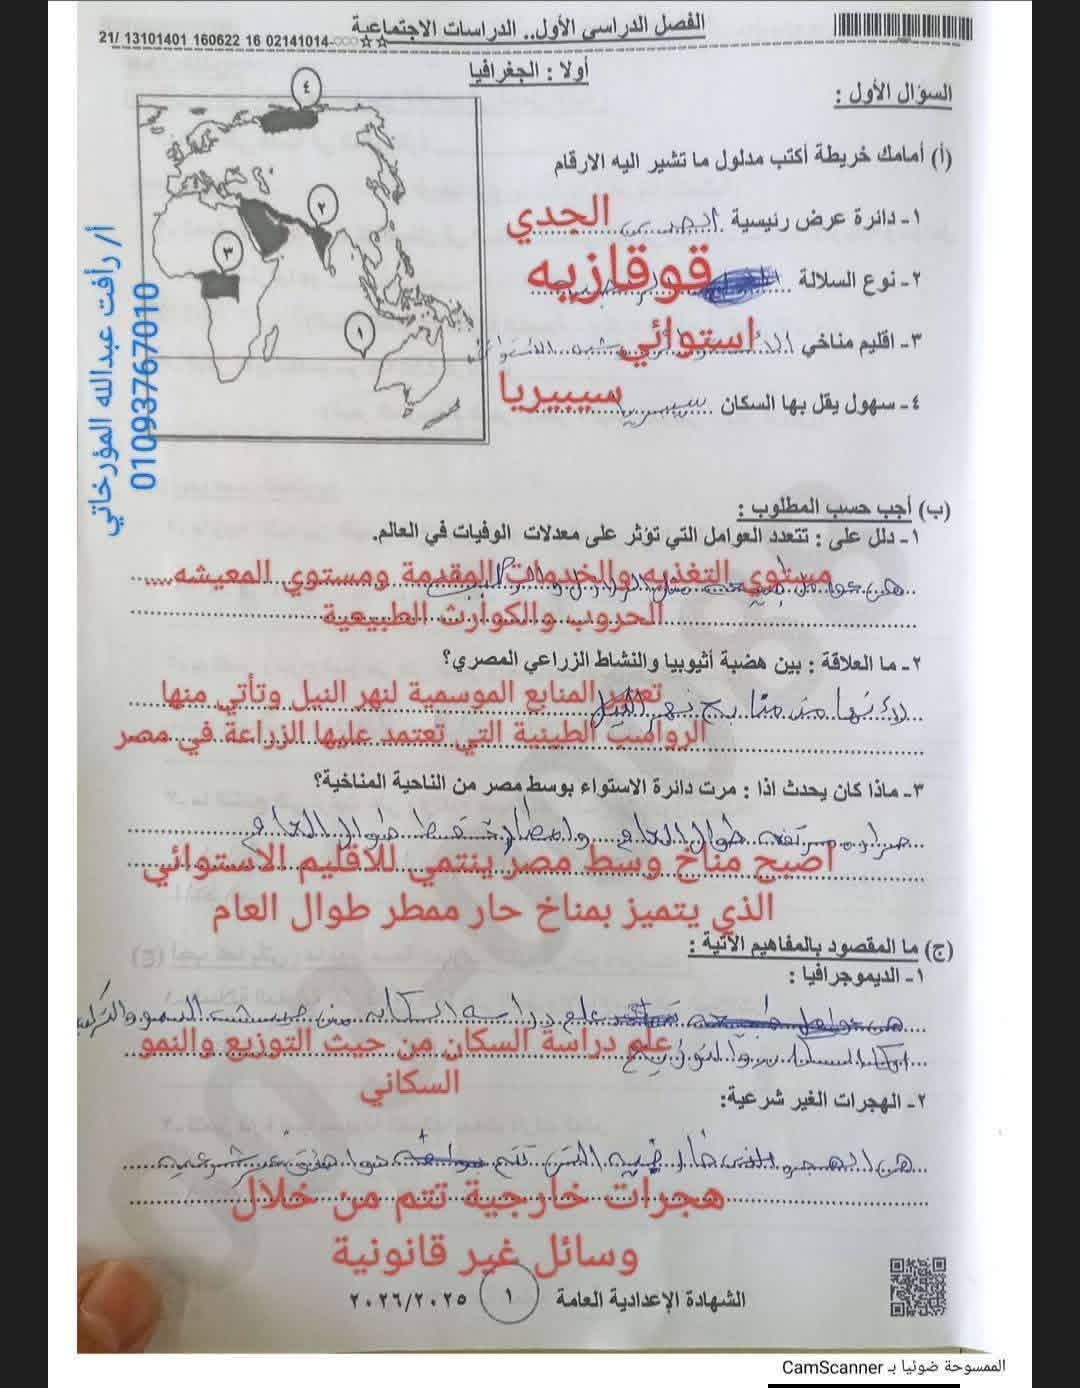 الفصل الدراسي الأول.. الدراسات الاجتماعية
21/ 13101401 160622 16 02141014-○○○☆☆
أولا : الجغرافيا
السؤال الأول :
(أ) أمامك خريطة أكتب مدلول ما تشير اليه الارقام
١- دائرة عرض رئيسية الجدي
٢- نوع السلالة قوقازيه
٣- اقليم مناخي استوائي
٤- سهول يقل بها السكان سيبيريا سيبيريا
٤
٢
٣
١
أ/ رأفت عبدالله المؤرخاتي
01093767010
(ب) أجب حسب المطلوب :
١- دلل على : تتعدد العوامل التي تؤثر على معدلات الوفيات في العالم.
مستوي التغذيه والخدمات المقدمة ومستوي المعيشه
الحروب والكوارث الطبيعية
٢- ما العلاقة : بين هضبة أثيوبيا والنشاط الزراعي المصري؟
تعتبر المنابع الموسمية لنهر النيل وتأتي منها
لأنها من منابع نهر النيل
الرواسب الطينية التي تعتمد عليها الزراعة في مصر
٣- ماذا كان يحدث اذا : مرت دائرة الاستواء بوسط مصر من الناحية المناخية؟
حراره مرتفعه طوال العام وامطار تسقط طوال العام
اصبح مناخ وسط مصر ينتمي للاقليم الاستوائي
الذي يتميز بمناخ حار ممطر طوال العام
(ج) ما المقصود بالمفاهيم الآتية :
١- الديموجرافيا :
علم دراسه السكان من حيث النمو
علم دراسة السكان من حيث التوزيع والنمو
السكاني
٢- الهجرات الغير شرعية:
هي الهجره الخارجيه التي تتم
هجرات خارجية تتم من خلال
وسائل غير قانونية
الشهادة الإعدادية العامة ١ ٢٠٢٦/٢٠٢٥
الممسوحة ضوئيا بـ CamScanner